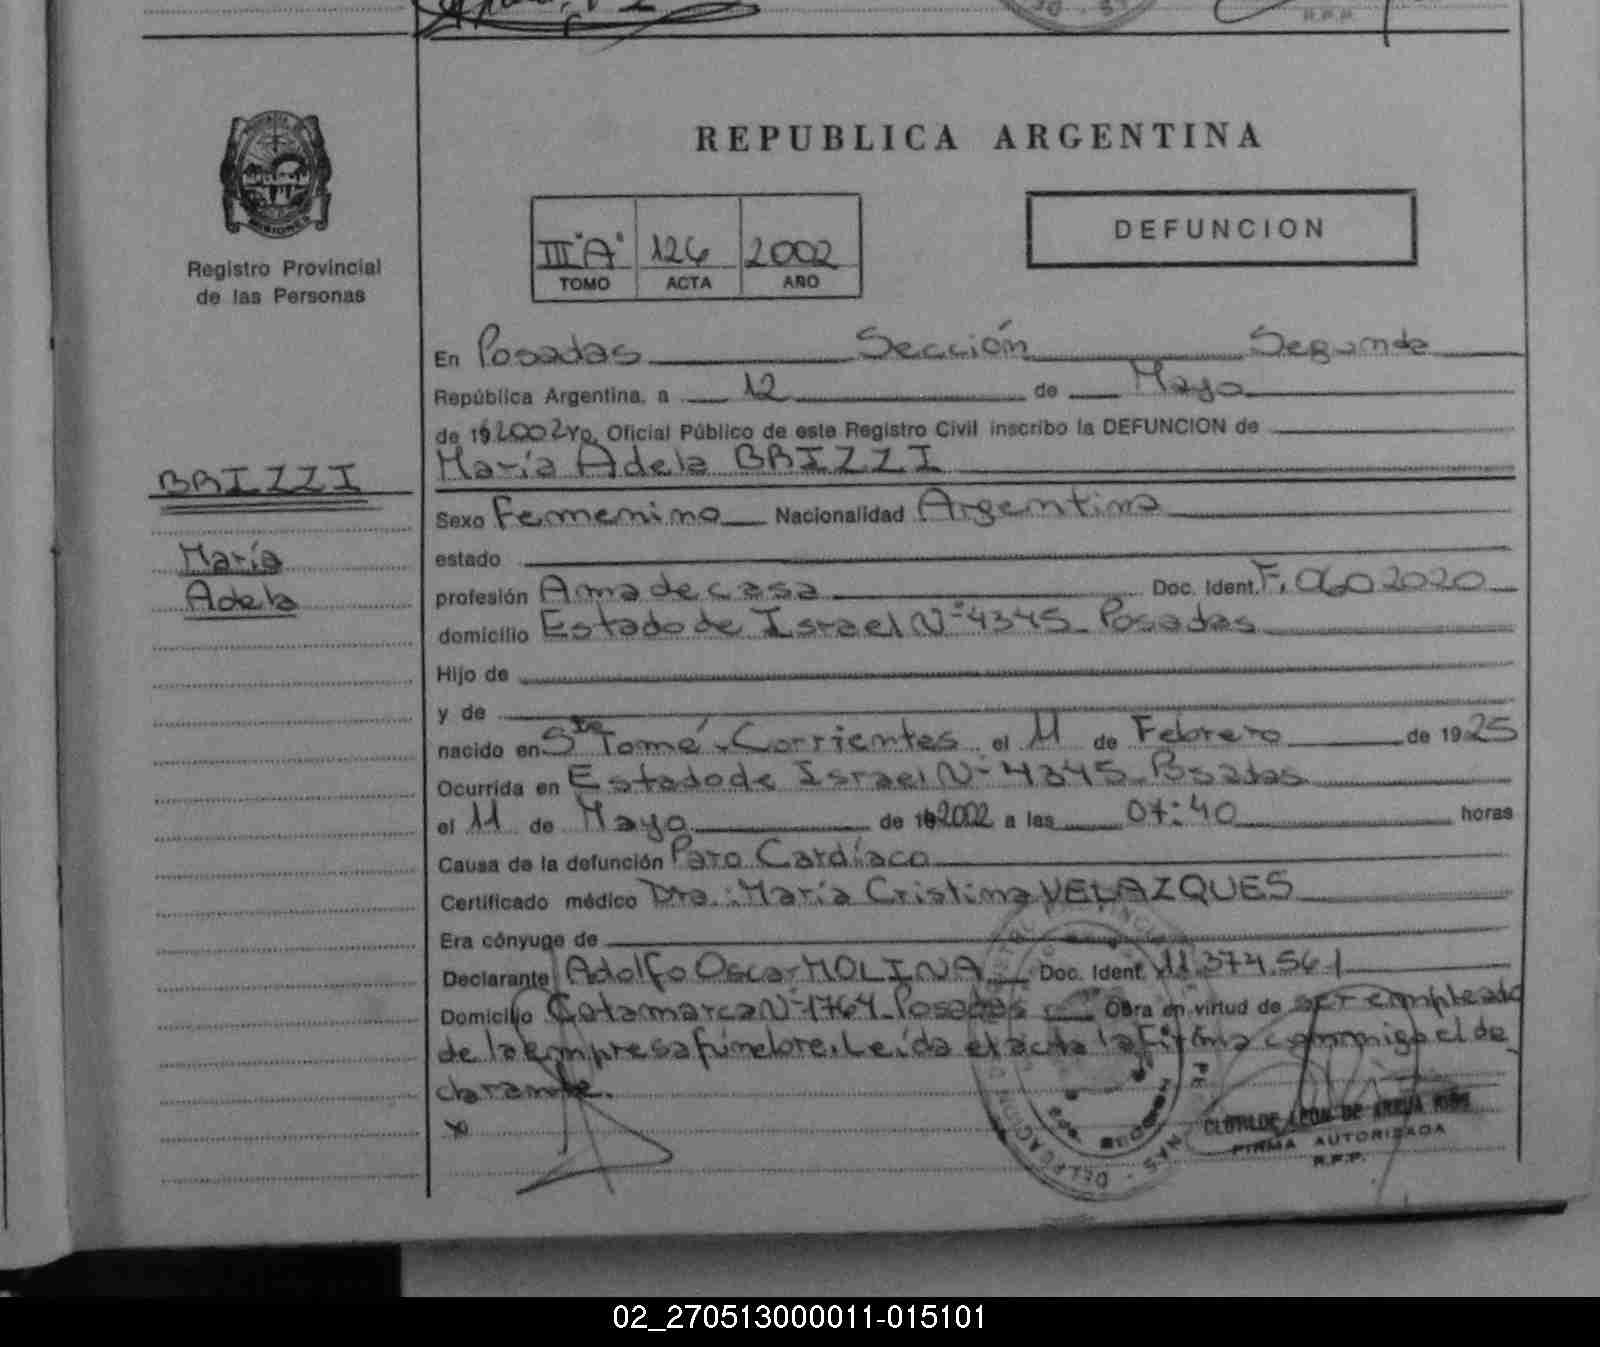 REPUBLICA ARGENTINA
MISIONES
Registro Provincial
de las Personas
III "A" 126 2002
TOMO ACTA AÑO
DEFUNCION
En Posadas Sección Segunda
República Argentina, a 12 de Mayo
de 19 2002 yo, Oficial Público de este Registro Civil inscribo la DEFUNCION de
María Adela BRIZZI
BRIZZI
María
Adela
Sexo Femenino Nacionalidad Argentina
estado
profesión Ama de casa Doc. Ident. F. 0602020
domicilio Estado de Israel Nº 4345 Posadas
Hijo de
y de
nacido en Sto Tomé - Corrientes el 11 de Febrero de 1925
Ocurrida en Estado de Israel Nº 4345 Posadas
el 11 de Mayo de 19 2002 a las 07:40 horas
Causa de la defunción Paro Cardíaco
Certificado médico Dra.: María Cristina VELAZQUES
Era cónyuge de
Declarante Adolfo Oscar MOLINA Doc. Ident. 11.374.561
Domicilio Catamarca Nº 1764 Posadas Obra en virtud de ser empleado
de la Empresa fúnebre. Leída el acta la firma conmigo el de
clarante.
CLOTILDE LEON DE
FIRMA AUTORIZADA
R.P.P.
02_270513000011-015101